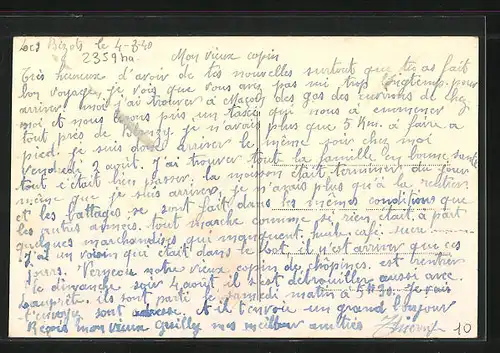 Les Bizots le 4-8-40
2359ha
Mon vieux copin
Très heureux d'avoir de tes nouvelles surtout que tu as fait
bon voyage, je vois que vous avez pas mi trop longtemp pour
arriver. moi j'ai trouver à Macon des gas des environs de chez
moi et nous avons pris un taxi qui nous a emmener
tout près de Blanzy. je n'avait plus que 5 Km. à faire a
pied. je suis donc arriver le même jour chez moi
vendredi 2 août. J'ai trouver toute la famille en bonne santé
tout c'était bien passer. la moisson était terminer du jour
même que je suis arriver, je n'avais plus qu'à la rentrer
et les battages se sont fait dans les mêmes conditions que
les autres années. tout marche comme si rien était à part
quelques marchandises qui manquent. huile café sucre
J'ai un voisin qui était dans le Lot, il n'est arriver que ces
jours. notre vieux copin de chopines est rentrer
le dimanche soir 4 août il s'est débrouiller aussi avec
ils sont parti le samedi matin à 5H30. Je vais
t'envoyer sont adresse. Et il t'envoie un grand bonjour
Reçois mon vieux mes meilleur amitiés
10